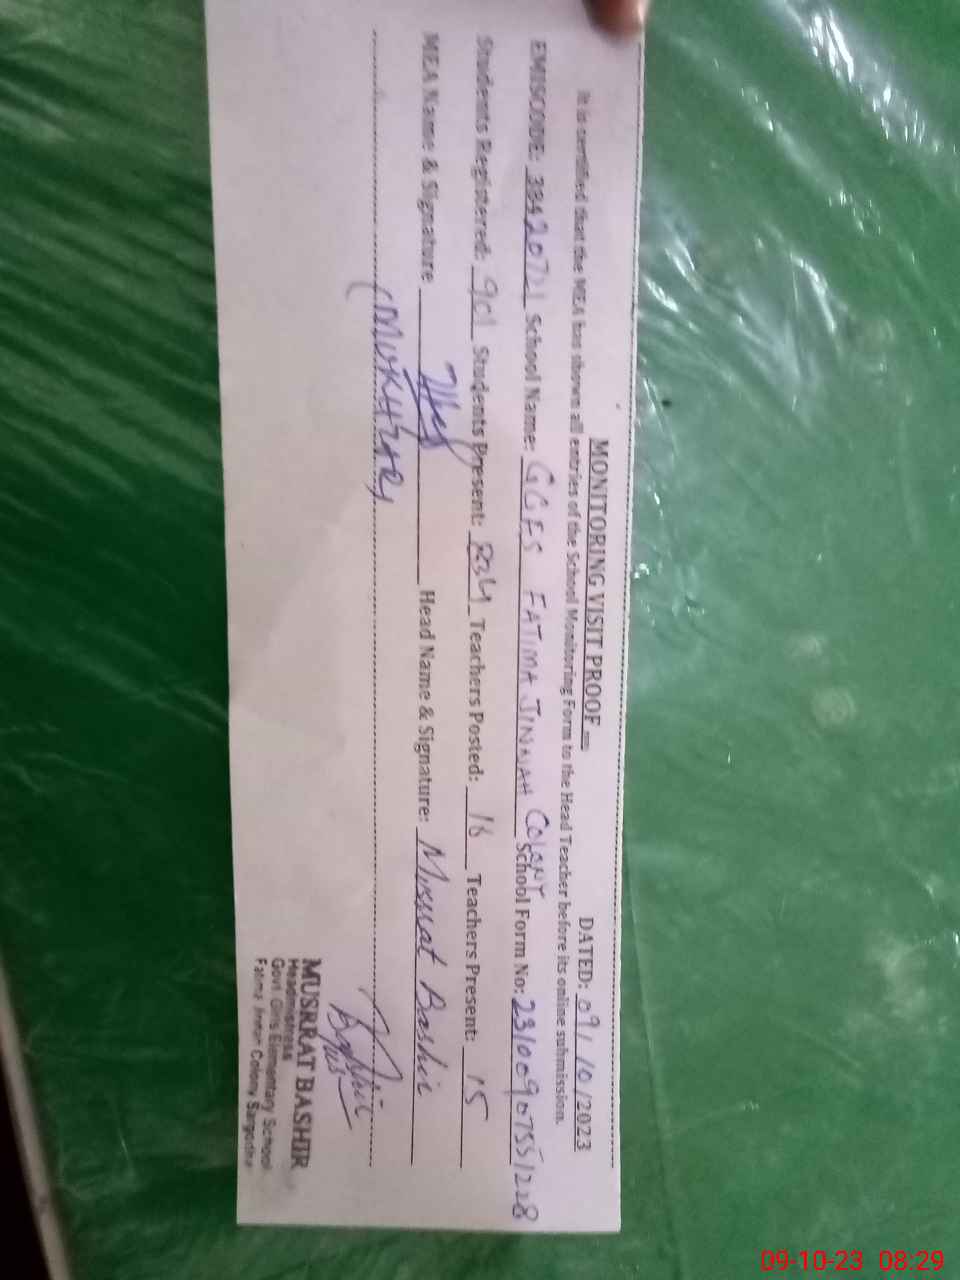 MONITORING VISIT PROOF
DATED: 09/10/2023
It is certified that the MEA has shown all entries of the School Monitoring Form to the Head Teacher before its online submission.
EMISCODE: 38420721 School Name: GGES FATIMA JINNAH COLONY School Form No: 23100907551228
Students Registered: 901 Students Present: 834 Teachers Posted: 16 Teachers Present: 15
MEA Name & Signature Head Name & Signature: Musrrat Bashir
(MUKHTAR)
MUSRRAT BASHIR
Headmistress
Govt. Girls Elementary School
Fatima Jinnah Colony Sargodha
09-10-23 08:29